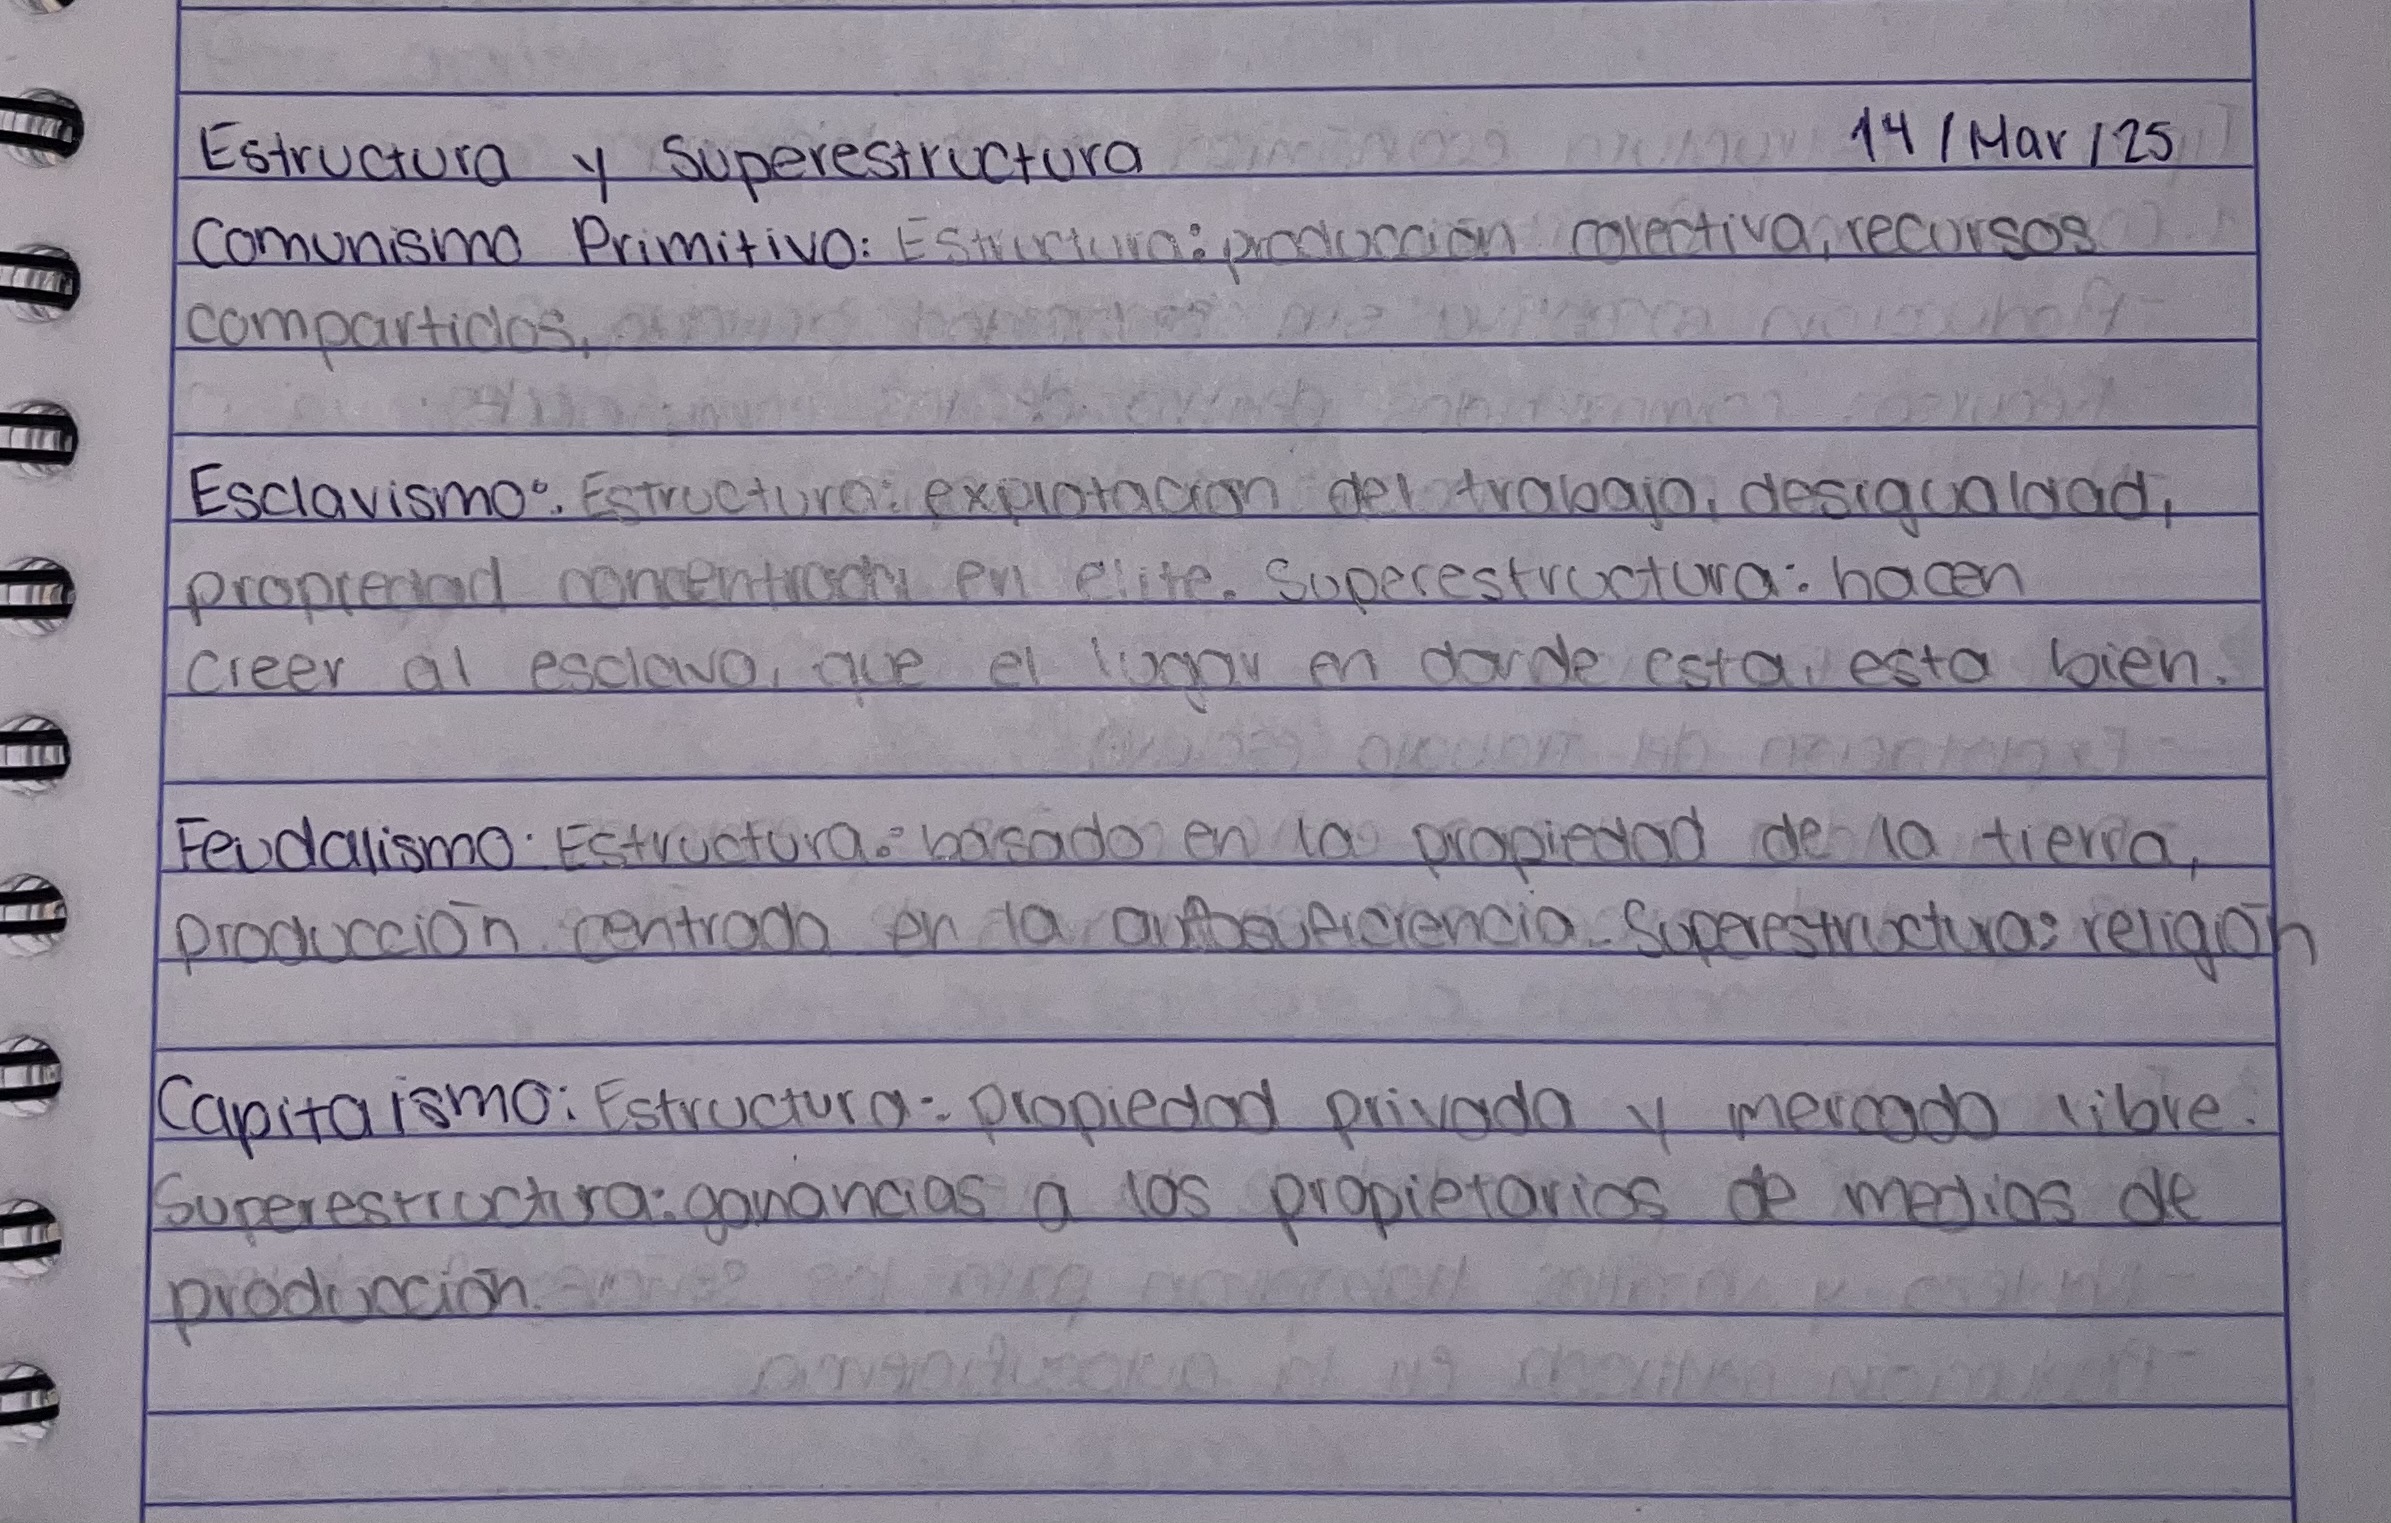 Estructura y Superestructura 14/Mar/25
Comunismo Primitivo: Estructura: producción colectiva, recursos
compartidos.
Esclavismo: Estructura: explotación del trabajo, desigualdad,
propiedad concentrada en elite. Superestructura: hacen
creer al esclavo, que el lugar en donde esta, esta bien.
Feudalismo: Estructura: basado en la propiedad de la tierra,
producción centrada en la autosuficiencia. Superestructura: religión
Capitalismo: Estructura: propiedad privada y mercado libre.
Superestructura: ganancias a los propietarios de medios de
producción.